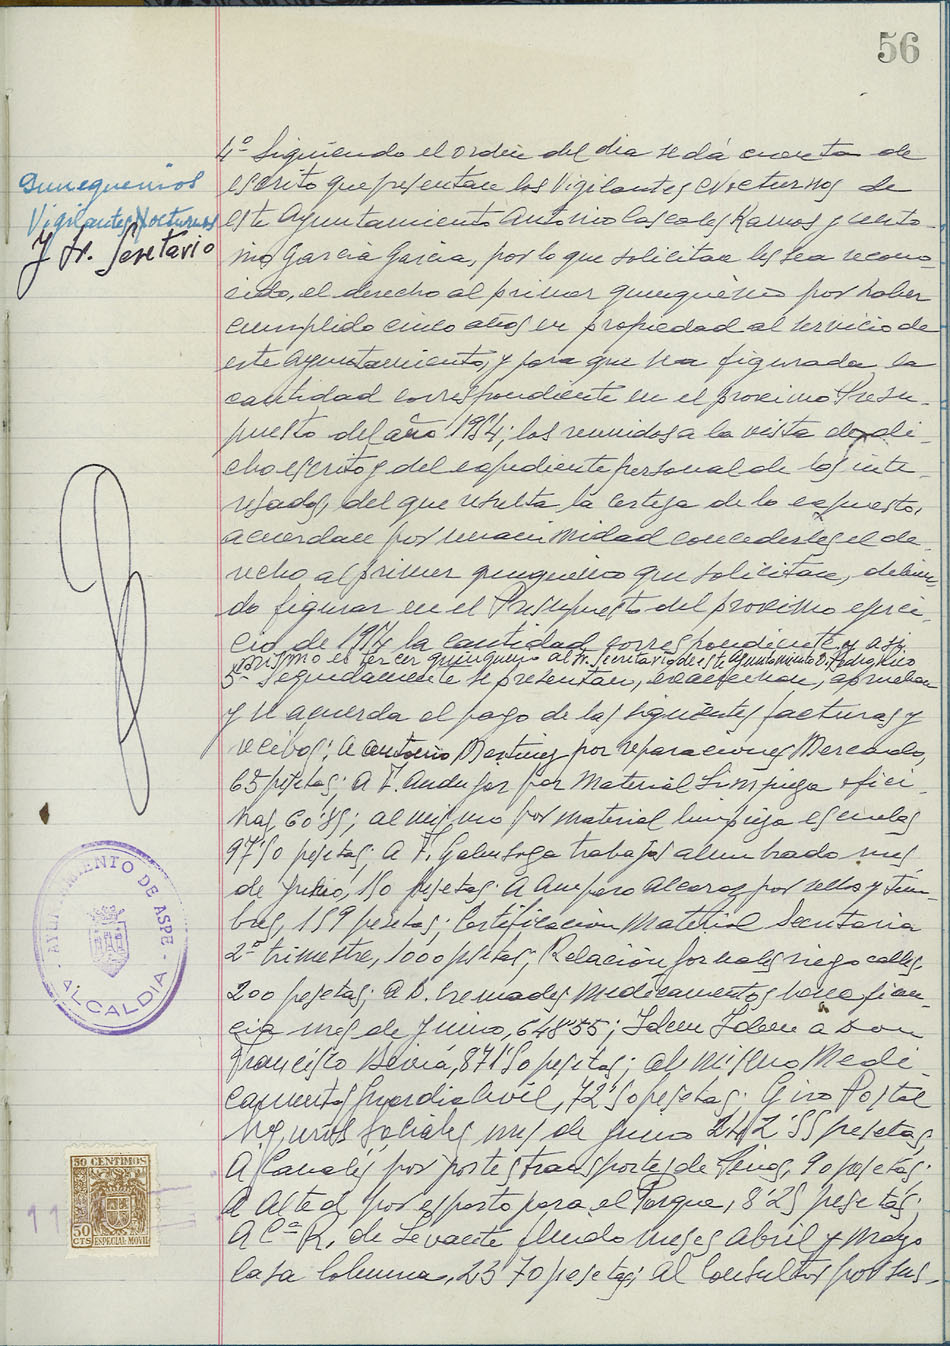 56
Quinquenios
Vigilantes Nocturnos
y Sr. Secretario
4º Siguiendo el orden del dia se dá cuenta de
escrito que presentan los Vigilantes Nocturnos de
este Ayuntamiento Antonio Cascales Ramos y Anto-
nio Garcia Garcia, por lo que solicitan les sea recono-
cido, el derecho al primer quinquenio por haber
cumplido cinco años en propiedad al servicio de
este Ayuntamiento, y para que sea figurada la
cantidad correspondiente en el proximo Presu-
puesto del año 1954; los reunidos a la vista de di-
cho escrito y del expediente personal de los inte-
resados, del que resulta la certeza de lo expuesto,
acuerdan por unanimidad concederles el de-
recho al primer quinquenio que solicitan, debien-
do figurar en el Presupuesto del proximo ejerci-
cio de 1954 la cantidad correspondiente y asi
mismo el tercer quinquenio al Sr. Secretario de este Ayuntamiento D. Pedro
5º Seguidamente se presentan, examinan, aprueban
y se acuerda el pago de las siguientes facturas y
recibos: A Antonio Martinez por reparaciones Mercado,
65 pesetas; A F. Andujar por Material Limpieza ofici-
nas 60'85; al mismo por material limpieza escuelas
97'50 pesetas; A F. trabajos alumbrado mes
de Junio, 150 pesetas; A Amparo Alcaraz por sellos y tim-
bres, 159 pesetas; Certificacion Material Secretaria
2º trimestre, 1000 pesetas; Relación jornales riego calles,
200 pesetas; A D. Cremades Medicamentos beneficen-
cia mes de Junio, 648'55; Idem Idem a Don
Francisco 871'50 pesetas; al mismo Medi-
camentos Guardia Civil, 72'50 pesetas; Giro Postal
Seguros Sociales mes de Junio 2412'55 pesetas;
A Canals por portes transportes de 90 pesetas;
A Alted por esparto para el Parque, 8'25 pesetas;
A Cª R. de Levante fluido meses Abril y Mayo
Casa Columna, 23'70 pesetas; Al Consultor por sus-
AYUNTAMIENTO DE ASPE
ALCALDIA
50 CENTIMOS
50
CTS
ESPECIAL MOVIL
11